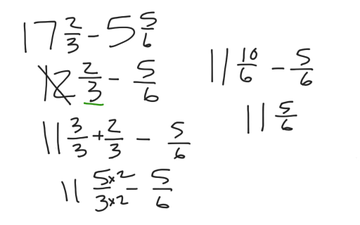 17 2/3 - 5 5/6
12 2/3 - 5/6
11 3/3 + 2/3 - 5/6
11 5×2/3×2 - 5/6
11 10/6 - 5/6
11 5/6